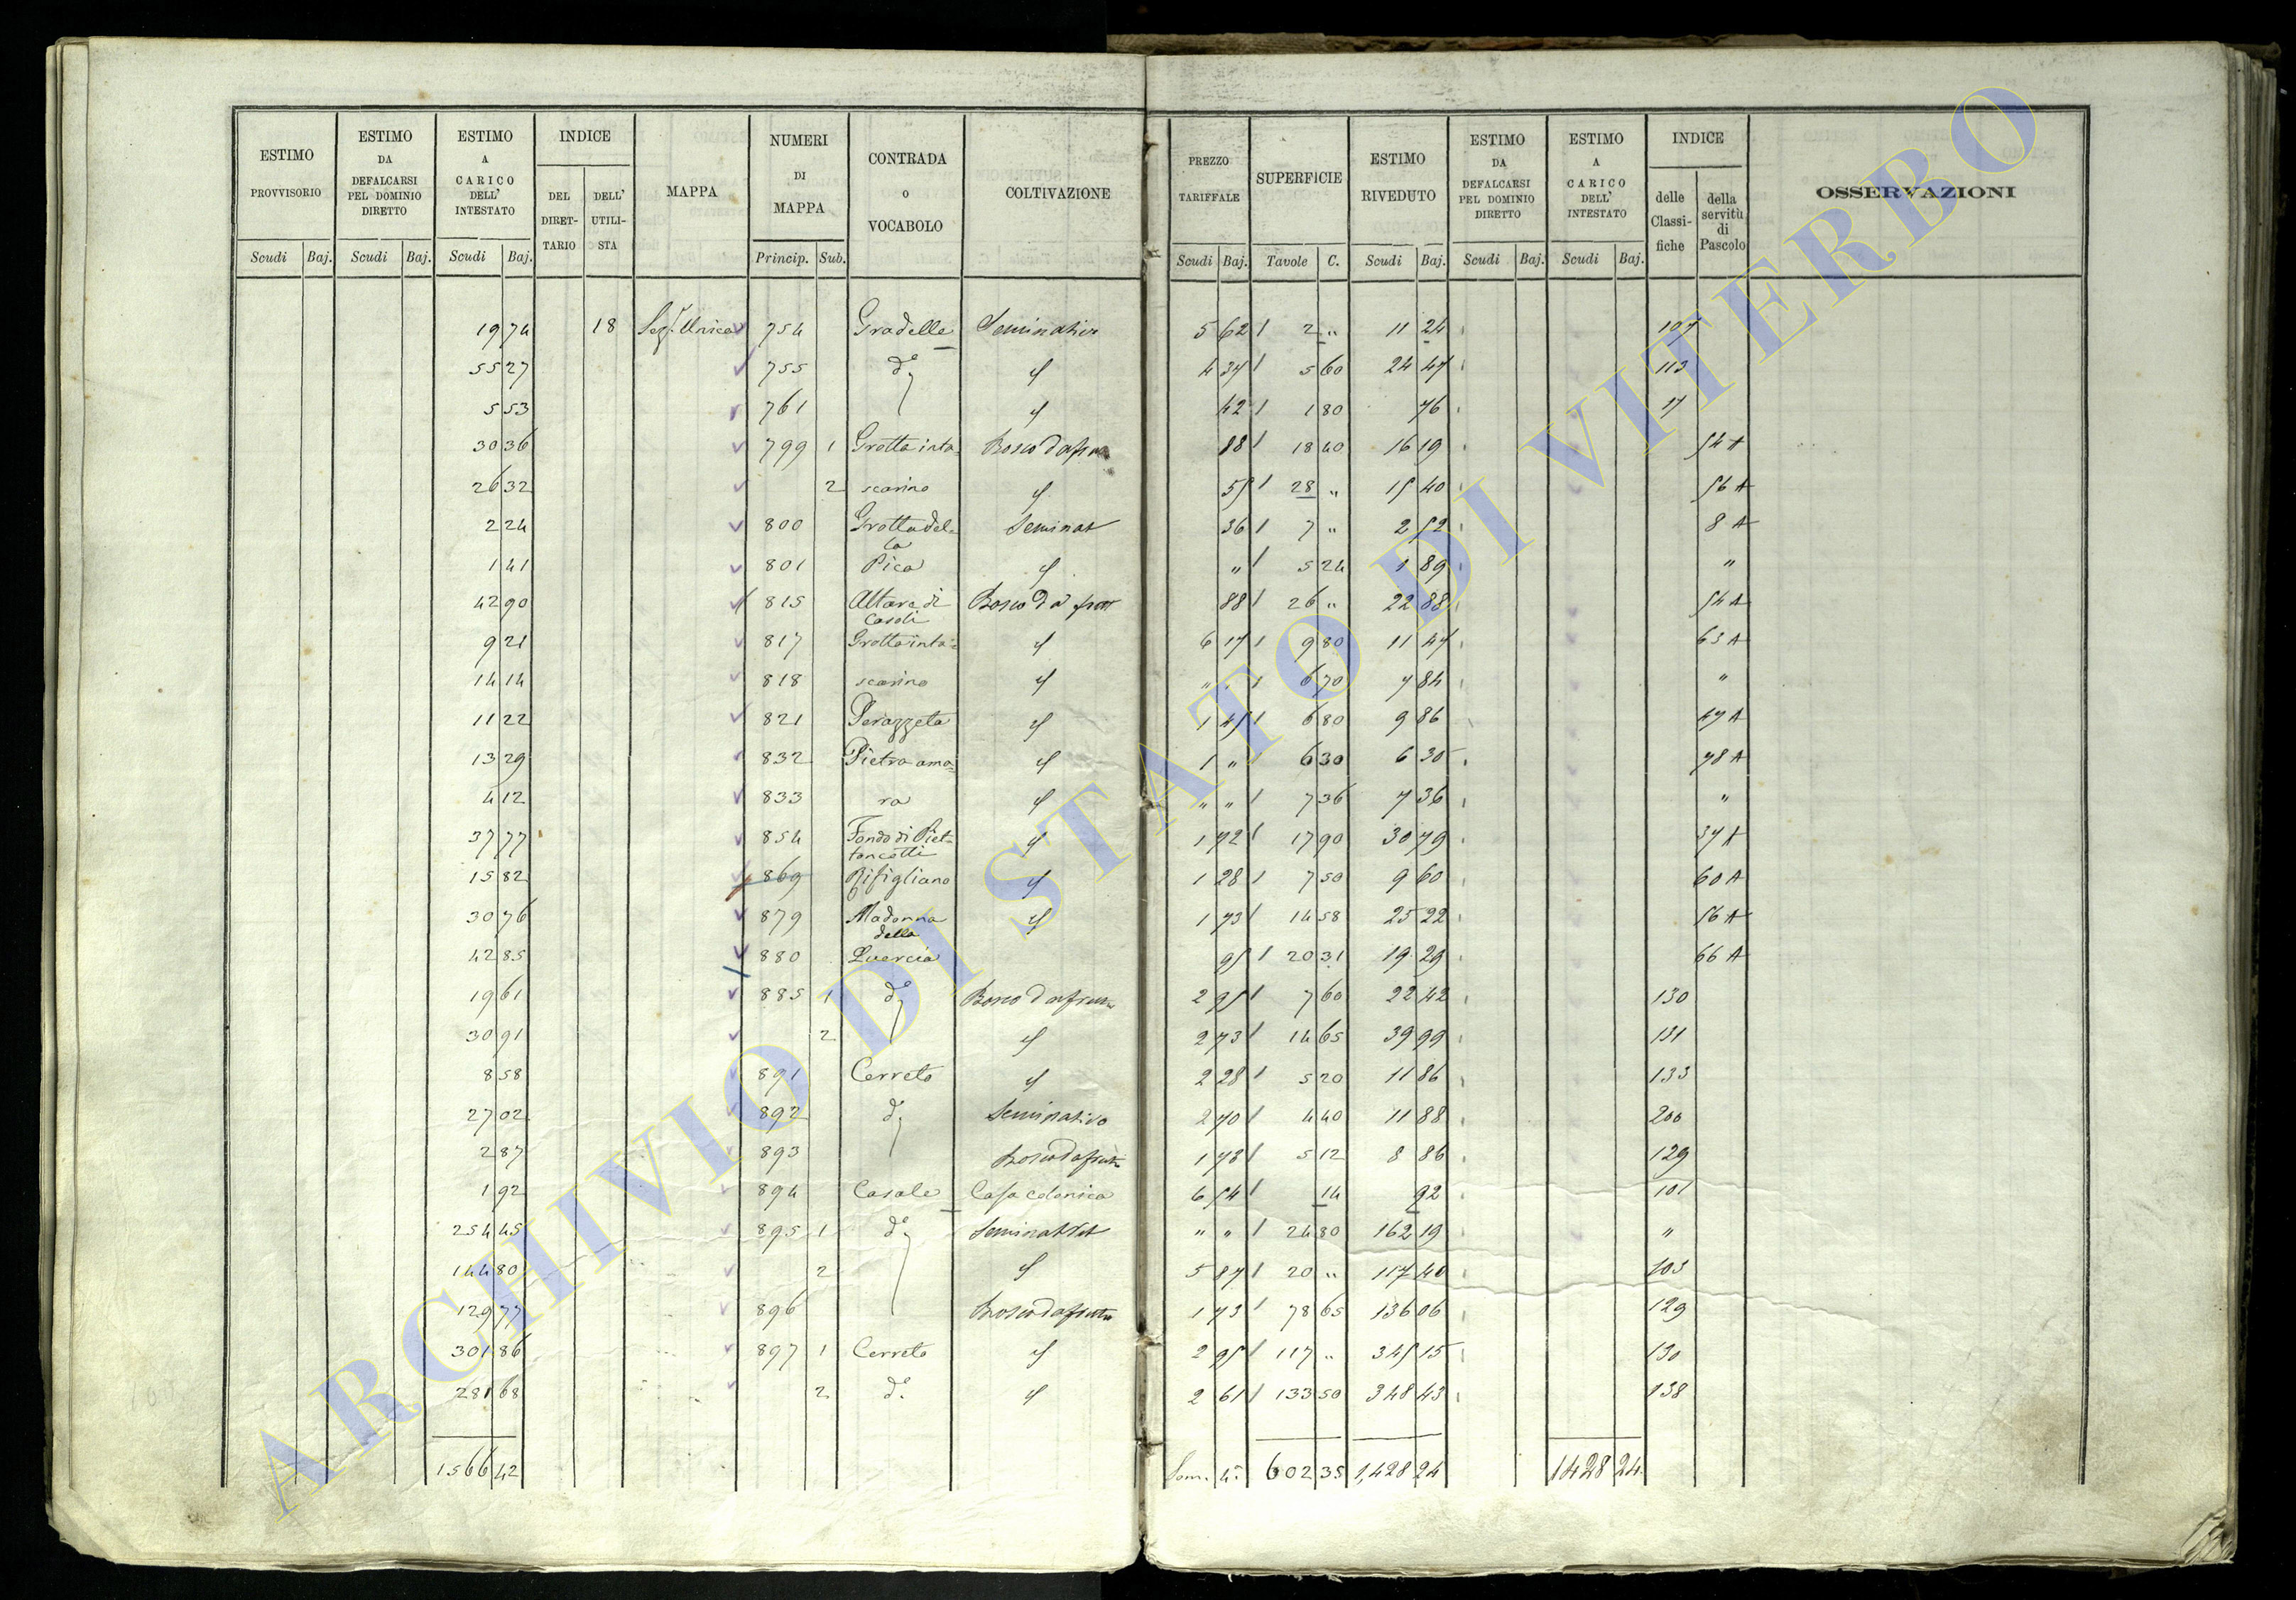 ESTIMO PROVVISORIO
ESTIMO DA DEFALCARSI PEL DOMINIO DIRETTO
ESTIMO A CARICO DELL' INTESTATO
INDICE
DEL DIRET-TARIO
DELL' UTILI-STA
MAPPA
NUMERI DI MAPPA
CONTRADA o VOCABOLO
COLTIVAZIONE
PREZZO TARIFFALE
SUPERFICIE
ESTIMO RIVEDUTO
ESTIMO DA DEFALCARSI PEL DOMINIO DIRETTO
ESTIMO A CARICO DELL' INTESTATO
INDICE
delle Classi-fiche
della servitù di Pascolo
OSSERVAZIONI
Scudi Baj. Scudi Baj. Scudi Baj. Princip. Sub. Scudi Baj. Tavole C. Scudi Baj. Scudi Baj. Scudi Baj.
19 74 18 Sez. Unica 754 Gradelle Seminativo 5 62 2 " 11 24 107
55 27 755 d° 4 37 5 60 24 47 113
5 53 761 42 1 80 76 17
30 36 799 1 Grotta inta- Bosco da frutto 88 18 40 16 19 54 A
26 32 2 scarino 55 28 " 15 40 56 A
2 24 800 Grotta del- Seminat 36 7 " 2 52 8 A
la
1 41 801 Pica " 5 24 1 89 "
42 90 815 Altare di Bosco da frutt 88 26 " 22 88 54 A
Casoli
9 21 817 Grotta inta- 6 17 9 80 11 47 63 A
14 14 818 scarino " " 6 70 7 84 "
11 22 821 Perazzeta 1 45 6 80 9 86 47 A
13 29 832 Pietra ama- 1 " 6 30 6 30 78 A
4 12 833 ra " " 7 36 7 36 "
37 77 854 Fondo di Piet- 1 72 17 90 30 79 37 A
toncotti
15 82 869 Rifigliano 1 28 7 50 9 60 60 A
30 76 879 Madonna 1 73 14 58 25 22 56 A
della
42 85 880 Quercia 95 20 31 19 29 66 A
19 61 885 1 d° Bosco da frutto 2 95 7 60 22 42 130
30 91 2 2 73 14 65 39 99 131
8 58 891 Cerreto 2 28 5 20 11 86 133
27 02 892 d° Seminativo 2 70 4 40 11 88 200
2 87 893 Bosco da frutto 1 73 5 12 8 86 129
1 92 894 Casale Casa colonica 6 54 14 92 101
254 45 895 1 d° Seminat " " 24 80 162 19 "
144 80 2 5 87 20 " 117 40 103
129 77 896 Bosco da frutto 1 73 78 65 136 06 129
301 86 897 1 Cerreto 2 95 117 " 345 15 130
281 68 2 d°. 2 61 133 50 348 43 138
1566 42 Som. 602 35 1,428 24 1428 24
ARCHIVIO DI STATO DI VITERBO